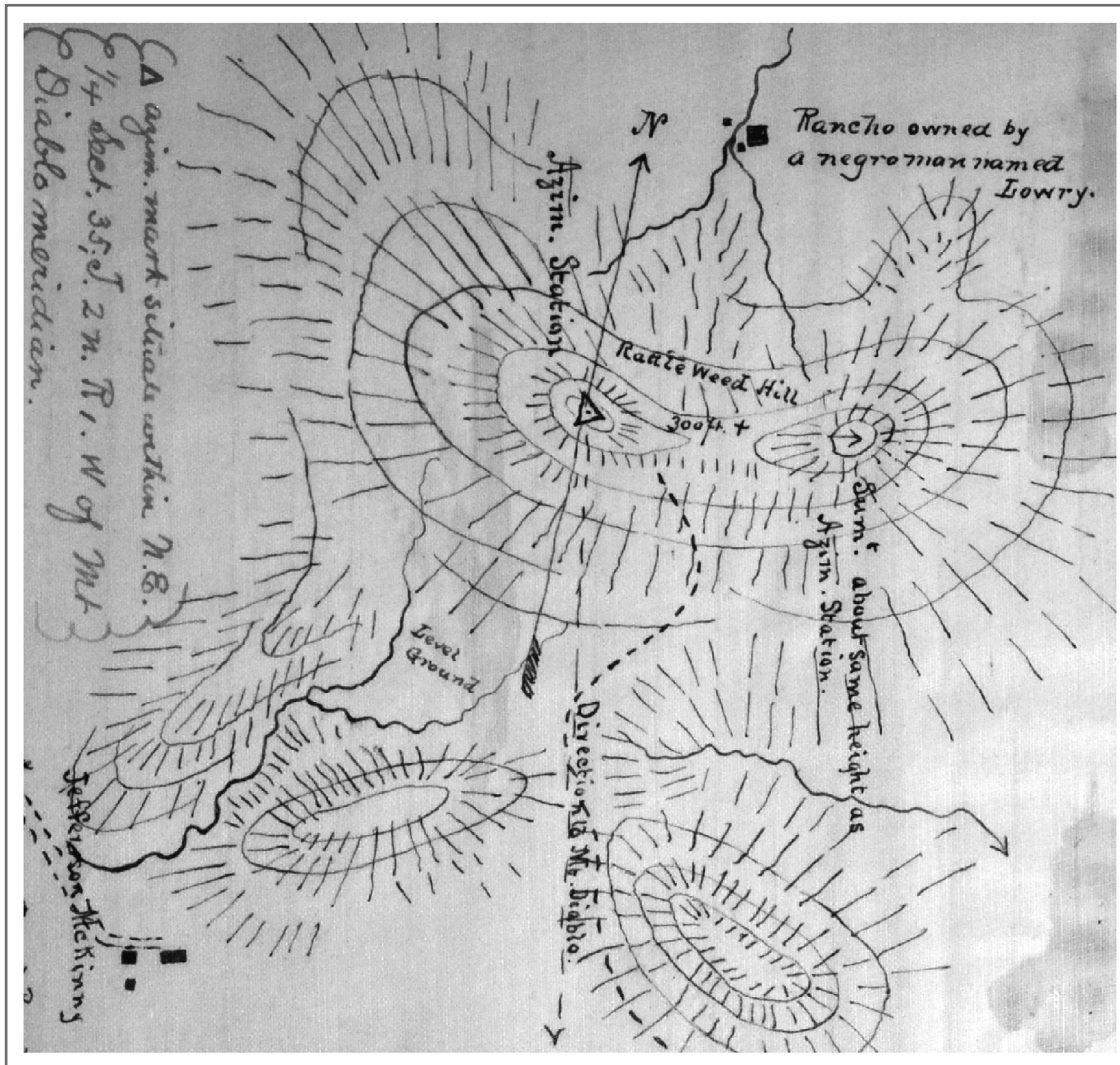 △ azim. mark situate within N.E.
1/4 Sect. 35, T. 2 N. R 1. W of Mt
Diablo meridian.
N
Azim. Station
Rancho owned by
a negro man named
Lowry.
Rattle Weed Hill
300 ft. +
Sumt. about same height as
Azim. Station.
Level
Ground
Direction to Mt. Diablo.
Jefferson McKinny